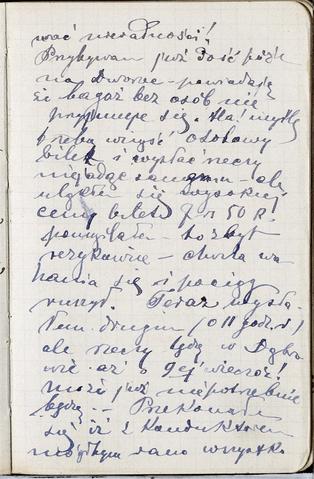 wać nieradności!
Przybywam już dość późn
na dworzec – powiadają
że bagaż bez osób nie
przyjmuje się. Ha! myślę
trzeba wziąść osobowy
bilet i wysłać rzeczy
nie jadąc samemu – ale
się wysokiej
ceny biletu 7 r 50 k.
pomyślałem – to zbyt
ryzykowne – chwila wa
hania się i pociąg
ruszył. Teraz wysła
łem drugim / o 11 godz. r /
ale rzeczy będą w Dąbro
wie aż o 9ej wieczór!
może już niepotrzebnie
będą. – Przekonałem
się iż z konduktorem
mógłbym dano wszystko